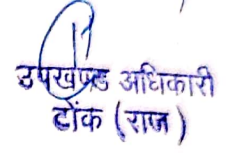 उपखण्ड अधिकारी
टोंक (राज)